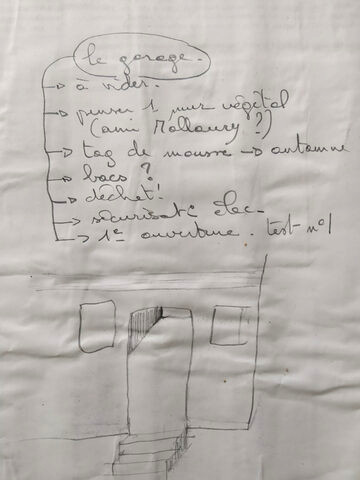 le garage.
→ à vider.
→ penser 1 mur végétal
(ami Mollaury ?)
→ tag de mousse → automne
→ bacs ?
→ déchet !
→ sécurisat° élec-
→ 1e ouverture. test n°1